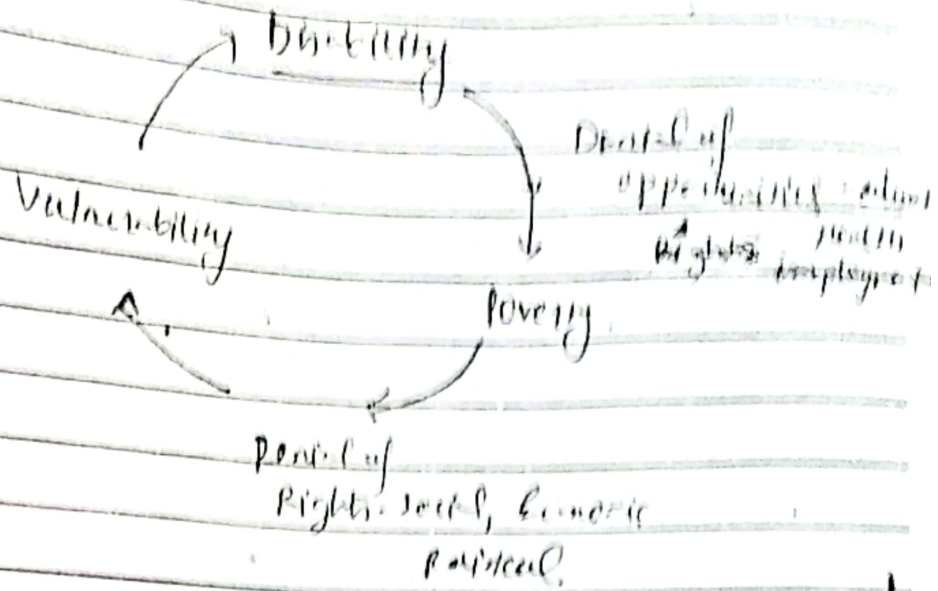 Disability
Denial of
opportunities - educ
Rights health
employment
Vulnerability
Poverty
Denial of
Rights - social, Economic
Political